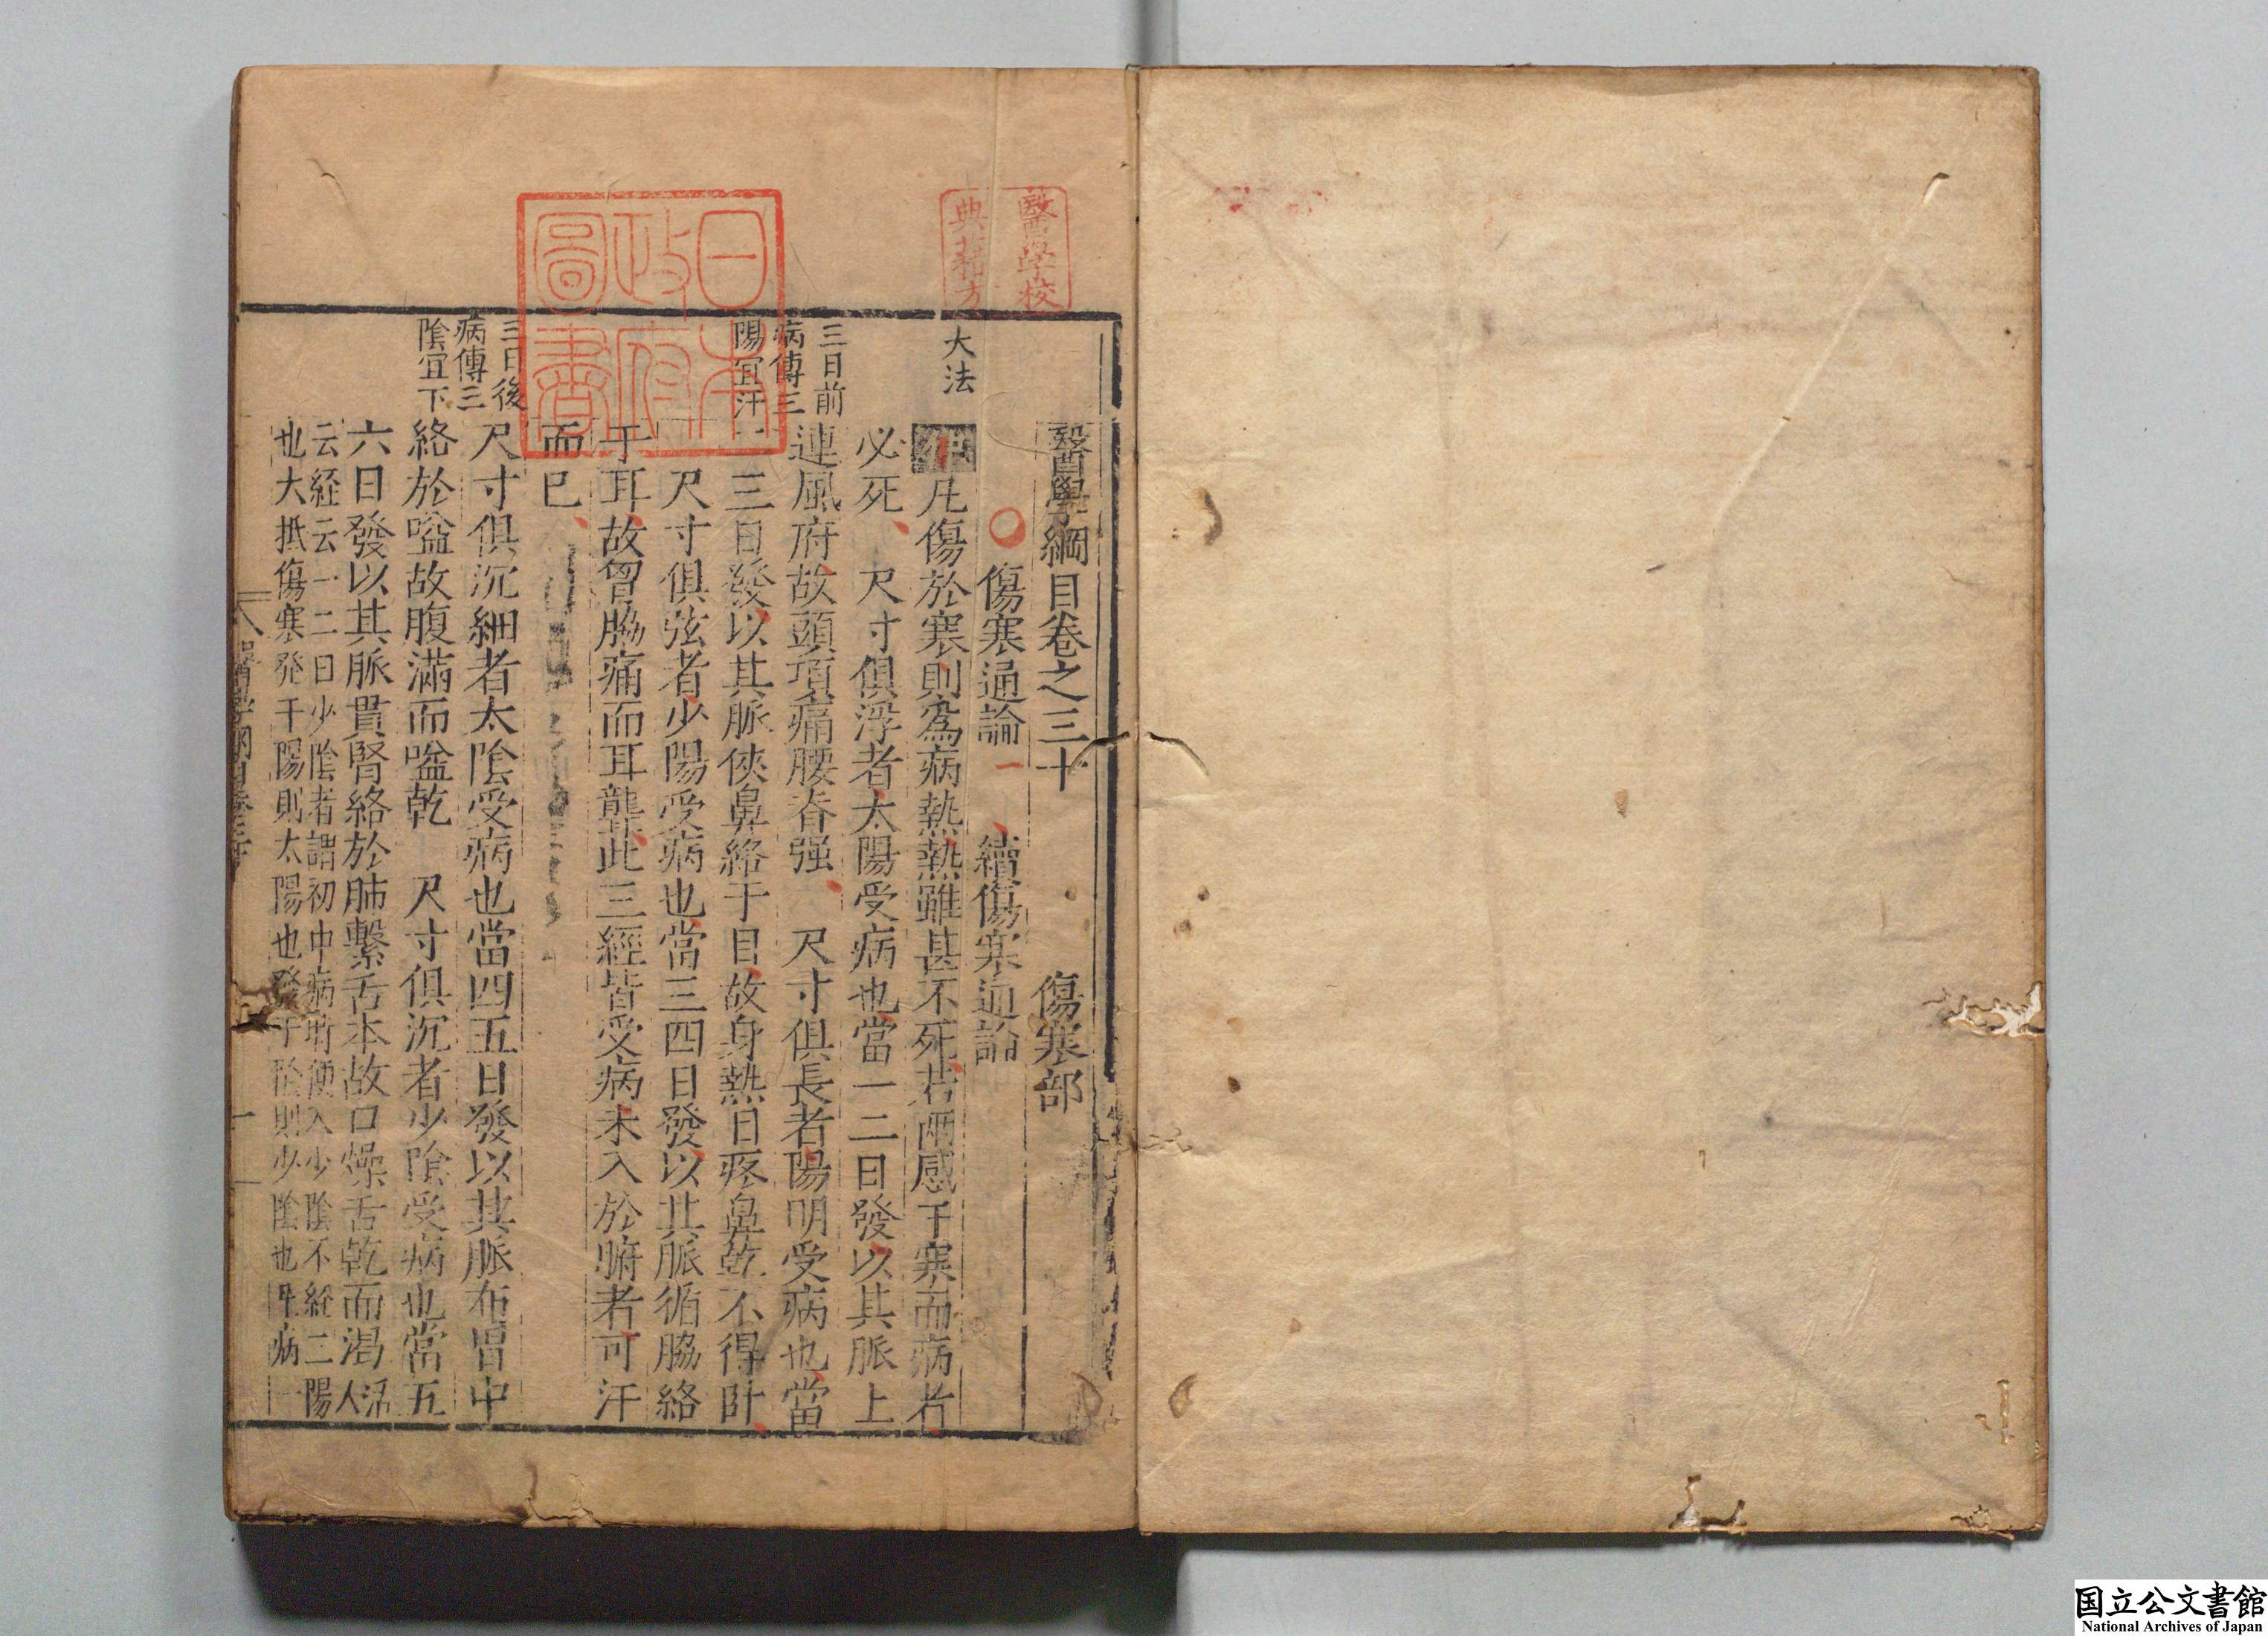 醫學校
典藏方
日本
政府
圖書
醫學綱目卷之三十
傷寒部
傷寒通論一
續傷寒通論
大法
凡傷於寒則為病熱熱雖甚不死若兩感于寒而病者
必死
尺寸俱浮者太陽受病也當一二日發以其脈上
三日前
病傳三
陽宜汗
連風府故頭項痛腰脊强
尺寸俱長者陽明受病也當
二三日發以其脈俠鼻絡于目故身熱目疼鼻乾不得卧
尺寸俱弦者少陽受病也當三四日發以其脈循脇絡
于耳故胷脇痛而耳聾此三經皆受病未入於腑者可汗
而已
三日後
病傳三
陰宜下
尺寸俱沉細者太陰受病也當四五日發以其脈布胷中
絡於嗌故腹滿而嗌乾
尺寸俱沉者少陰受病也當五
六日發以其脈貫腎絡於肺繫舌本故口燥舌乾而渴
活人
云経云一二日少陰者謂初中病時便入少陰不経三陽
也大抵傷寒発于陽則太陽也發于陰則少陰也此病一
国立公文書館
National Archives of Japan